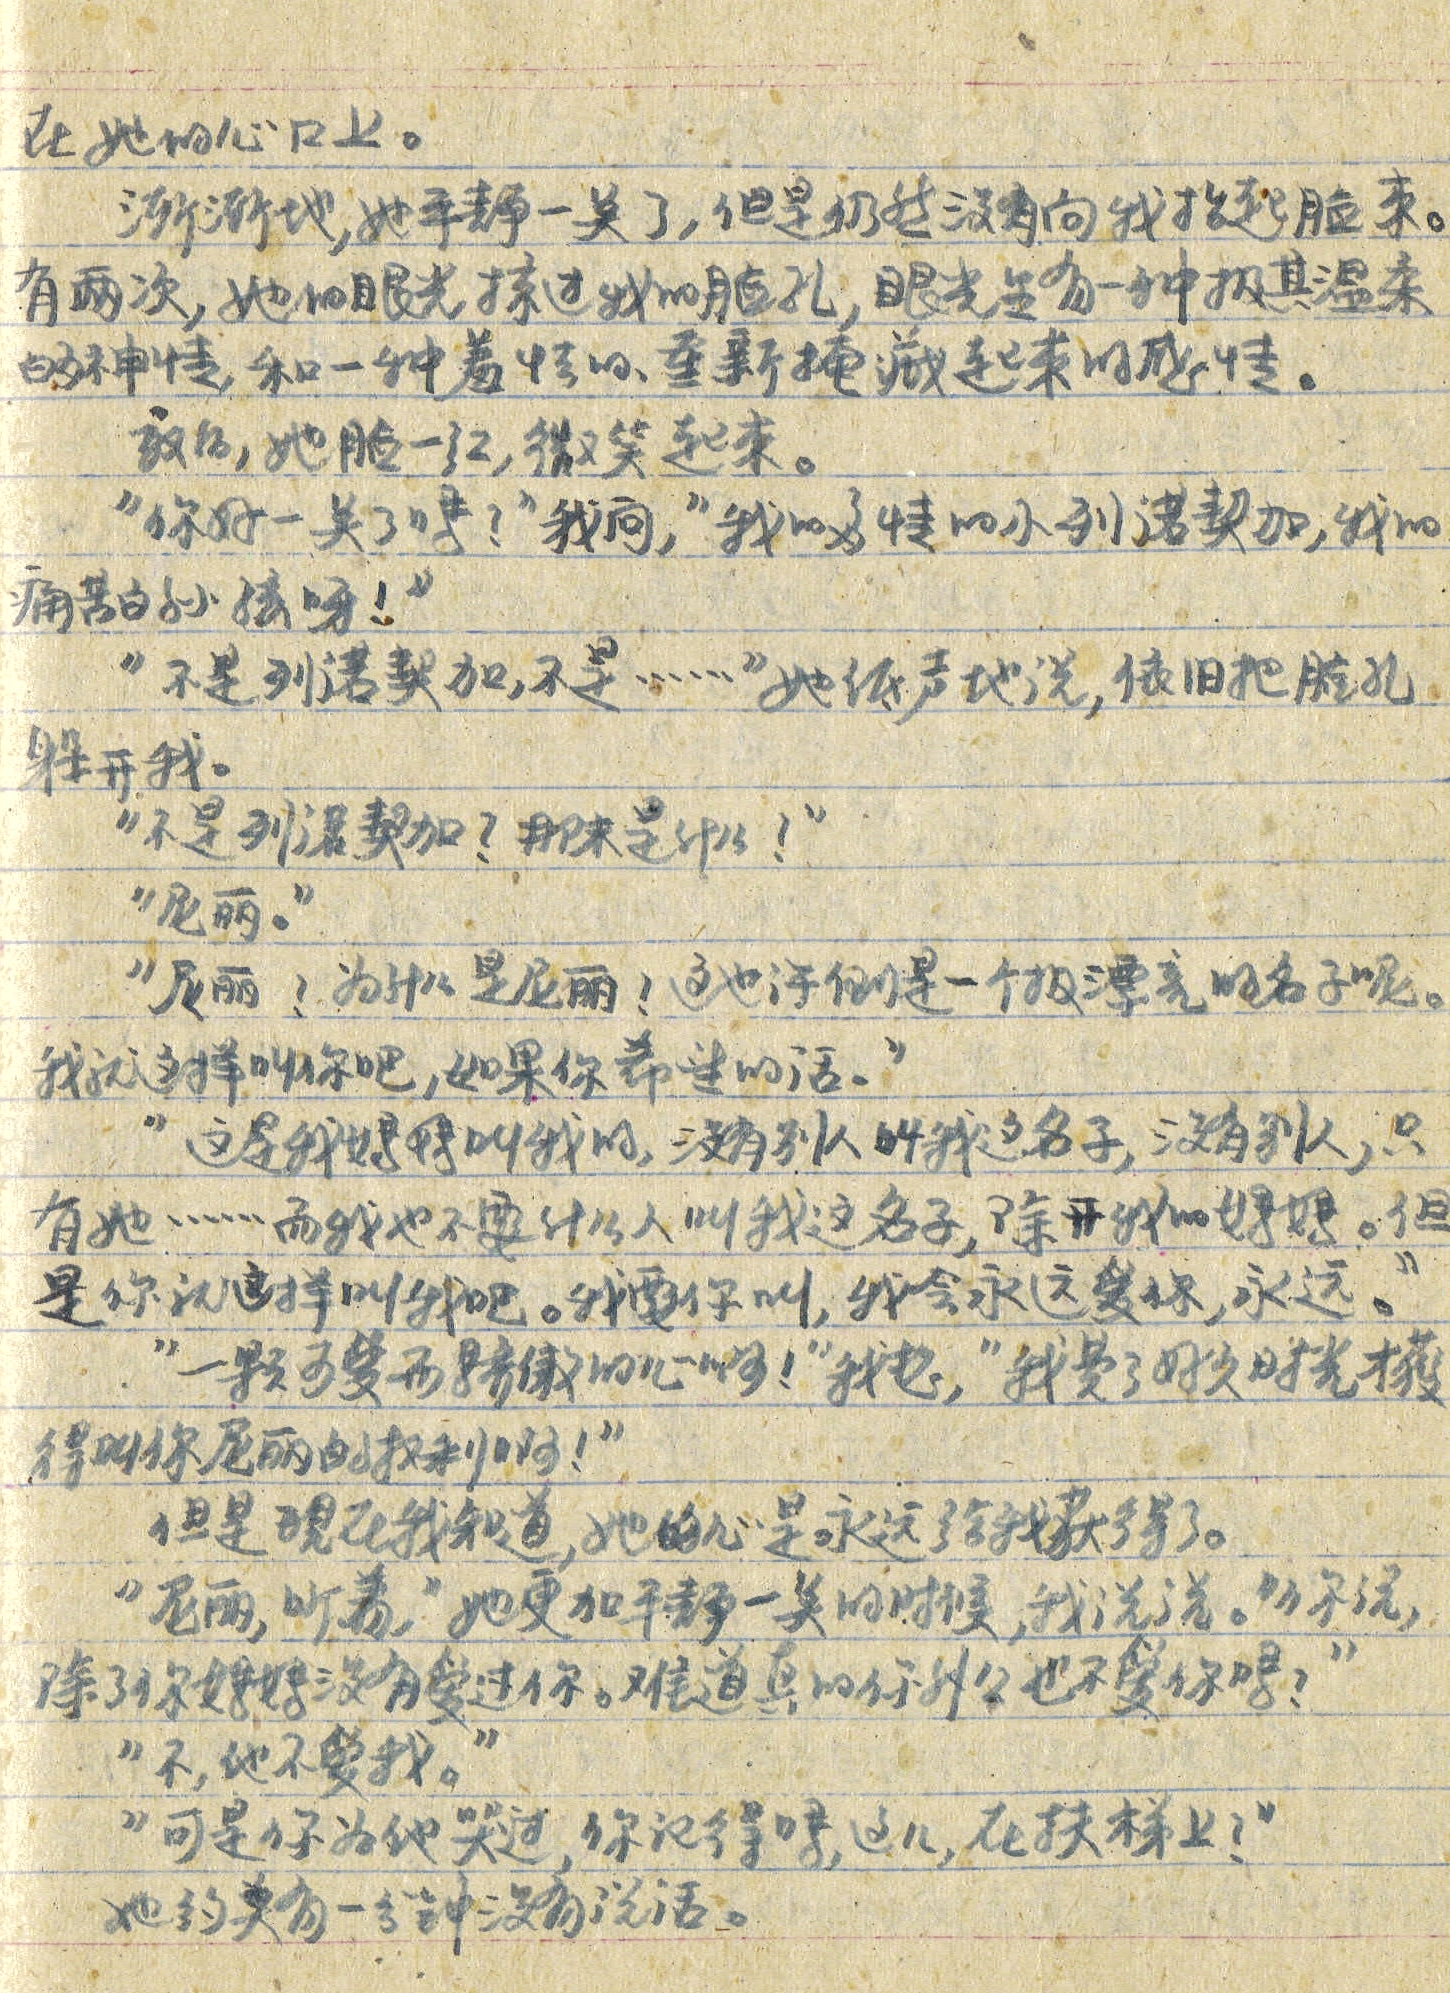 在她的心口上。
渐渐地,她平静一点了,但是仍然没有向我抬起脸来。
有两次,她的眼光掠过我的脸孔,眼光里有一种极其温柔
的神情,和一种羞怯的、重新掩藏起来的感情。
最后,她脸一红,微笑起来。
“你好一点了吗?”我问,“我的多情的小列诺契加,我的
痛苦的小孩呀!”
“不是列诺契加,不是……”她低声地说,依旧把脸孔
躲开我。
“不是列诺契加?那末是什么?”
“尼丽。”
“尼丽?为什么是尼丽?这也许倒是一个极漂亮的名子呢。
我就这样叫你吧,如果你希望的话。”
“这是我妈妈叫我的,没有别人叫我这名子,没有别人,只
有她……而我也不要什么人叫我这名子,除开我的妈妈。但
是你就这样叫我吧。我要你叫,我会永远爱你,永远。”
“一颗可爱而骄傲的心啊!”我想,“我费了好久时光才获
得叫你尼丽的权利啊!”
但是现在我知道,她的心是永远给我获得了。
“尼丽,听着,”她更加平静一点的时候,我说说。“你说,
除了你妈妈没有爱过你。难道真的你外公也不爱你吗?”
“不,他不爱我。”
“可是你为他哭过,你记得吗,这儿,在扶梯上?”
她约莫有一分钟没有说话。